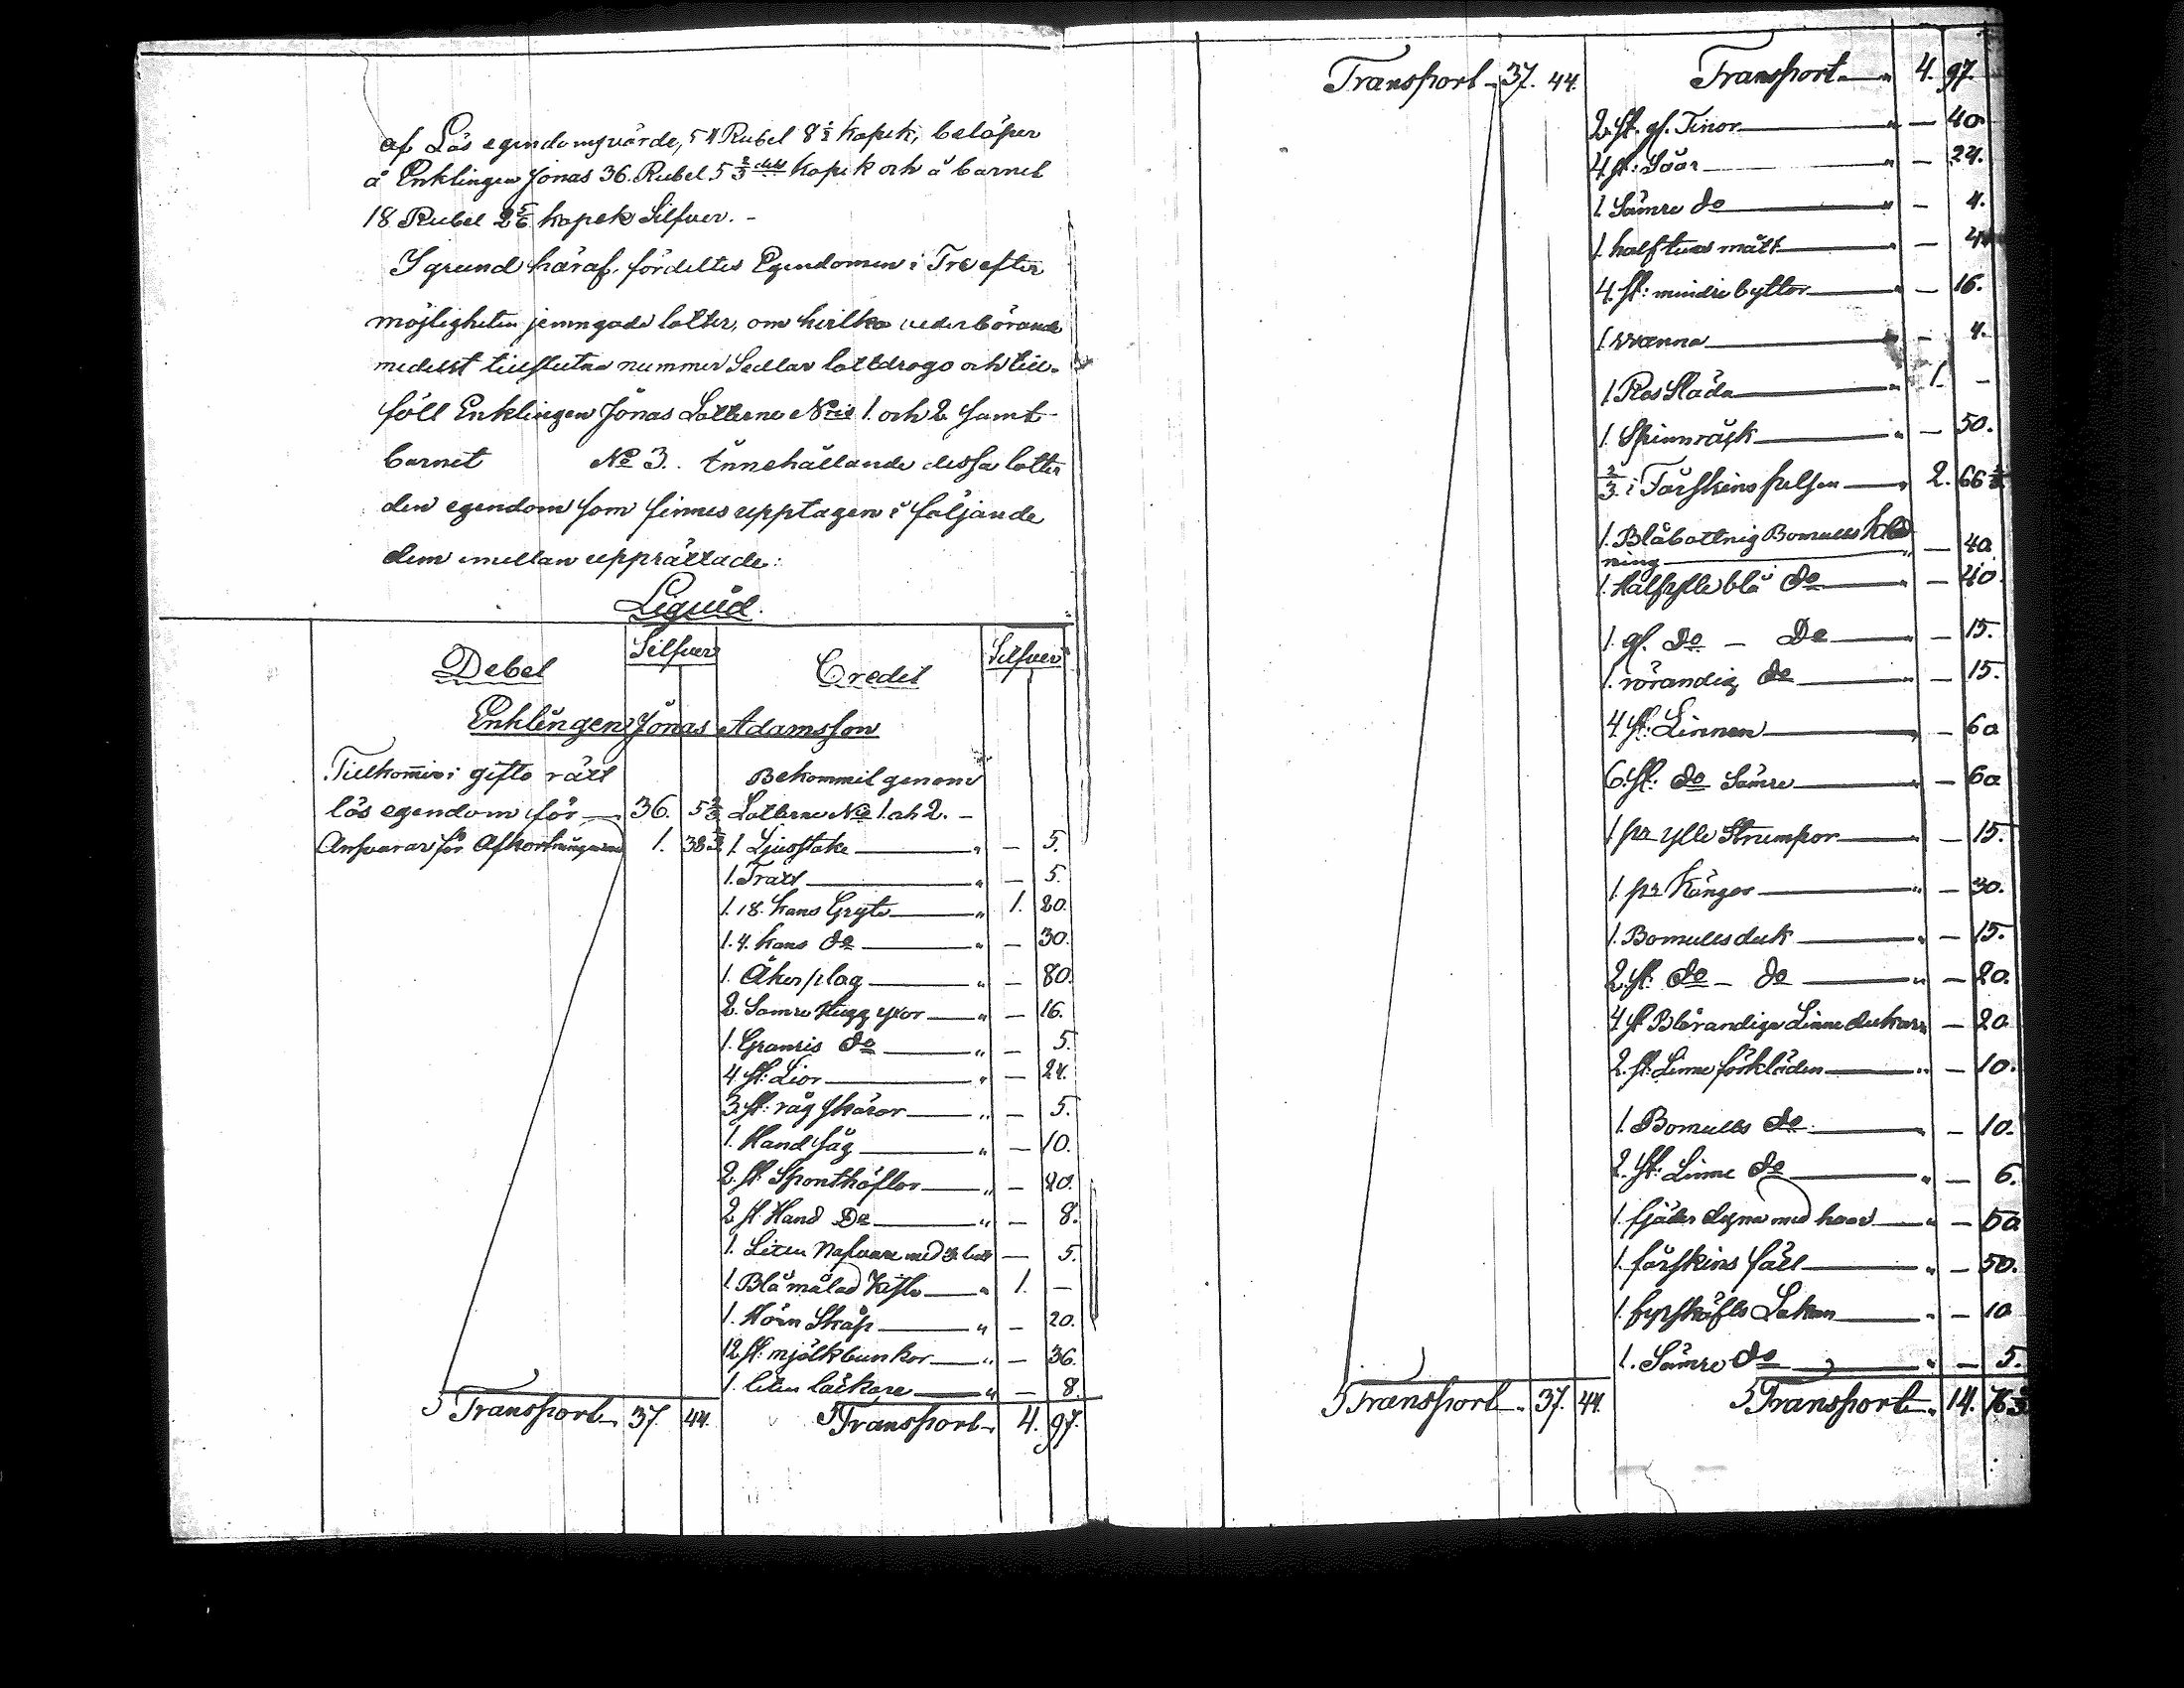 af Lös egendomsvärde, 54 Rubel 8 1/2 kopek, belöper
å Enklingen Jonas 36. Rubel 5 2/3 del kopek och å barnet
18 Rubel 2 5/6 kopek Silfver. -
I grund häraf, fördeltes Egendomen i Tre efter
möjligheten jemngada lotter, om hvilka vederbörande
medelst tillslutna nummer Sedlar lottdrogo och till-
föll Enklingen Jonas Lotterne Nris 1. och 2 samt
barnet No 3. Innehållande dessa lotter
den egendom som finnes upptagen i följande
dem emellan upprättade:
Liquid.
Debet Silfver Credit Silfver
Enklingen Jonas Adamsson
Tillkommer i gifto rätt
lös egendom för — 36. 5 2/3
Ansvarar för Afkortningarne 1. 38 1/3
Transport 37. 44.
Bekommit genom
Lotterne No 1. och 2. -
1 Ljusstake — " — 5.
1. Tratt — " — 5.
1. 18. kans Gryta — " 1. 20.
1. 4. kans do — " — 30.
1. Åkerplog — " — 80.
2. Sämre Hugg yxor — " — 16.
1. Granris do — " — 5.
4. st: Lior — " — 24.
3. st: råg skäror — " — 5.
1. Handsåg — " — 10.
2. st. Sponthöflar — " — 20.
2 st. Hand Do — " — 8.
1. Liten Nafvare med 3. — 5.
1. Blå målad Kista — " 1. —
1. Hörn Skåp — " — 20.
12. st: mjölkbunkor — " — 36.
1. liten lackare — " — 8.
Transport 4. 97.
Transport 37. 44.
Transport 37. 44.
Transport — " 4. 97.
2. st. gl. Tinor — " — 40
4. st: Såar — " — 24.
1. Sämre do — " — 4.
1. halftuns mått — " — 4
4. st: mindre byttor — " — 16.
1. vanna — " — 4.
1. Res Släda — " 1. —
1. Spinnräck — " — 50.
2/3. i Fårskins pelsen — " 2. 66 2/3
1. Blåbottnig Bomulls Kläd
ning — " — 40
1. Halfylle blå do — " — 40.
1. gl. do — Do — " — 15.
1. rörandig do — " — 15.
4. st: Linnen — " — 60
6. st: do Sämre — " — 60
1 par ylle Strumpor — " — 15.
1. par Kängor — " — 30.
1. Bomullsduk — " — 15.
2. st: do — do — " — 20.
4 st Blårandiga Linne dukar " — 20
2. st: Linne förkläden — " — 10.
1. Bomulls do — " — 10.
2. st: Linne do — " — 6.
1. fjäder dyna med hvar — " — 50
1. fårskins fäll — " — 50.
1. fyrsköfts Lakan — " — 10
1. Sämre do — " — 5.
Transport " 14. 76 2/3